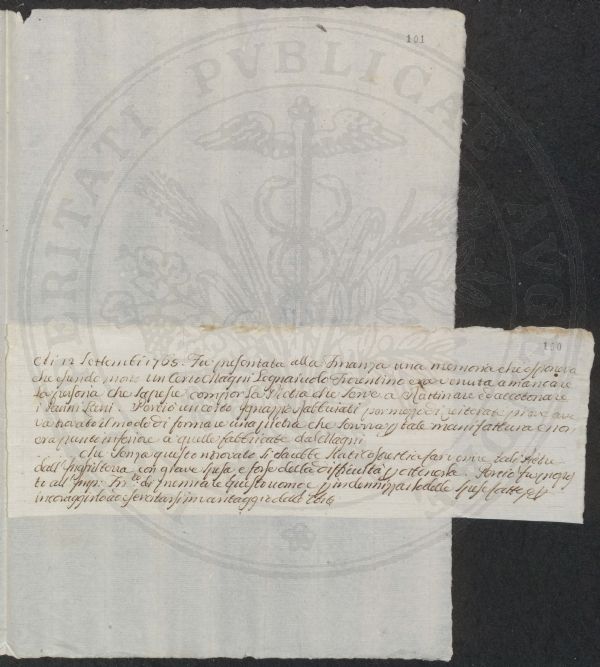 101
VERITATI PVBLICAE AVG
100
A di 12 Settembre 1765. Fu presentata alla Finanza una memoria che esponeva
che essendo morto un Certo Magni Legnaiuolo Fiorentino era venuta a mancare
la persona che sapesse compor la Pietra che serve a Rattinare e accotonare
i Panni Lani. Perciò un certo per mezzo di reiterate prove ave
va trovato il modo di formare una pietra che serviva a tale manifattura e non
era punto inferiore a quelle fabbricate da Magni
che senza questo ritrovato si sarebbe stati costretti a far venire tali Pietre
dall' Inghilterra con grave spesa e forse della difficultà per ottenerla. Perciò fu
to ad di premiare quest'uomo e indennizzarlo delle spese fatte per
incoraggirlo a esercitarsi in vantaggio dello Stato